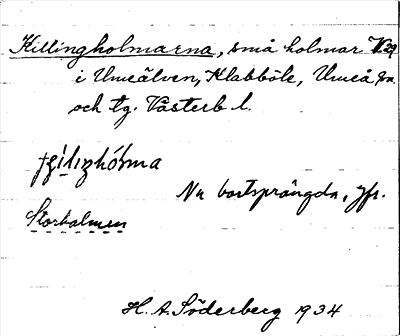 Killingholmarna, små holmar V. 29
i Umeälven, Klabböle, Umeå sn
och tg. Västerb l.
Nu bortsprängda, jfr.
Storholmen
H. A. Söderberg 1934